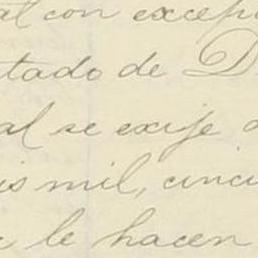 al con excep
tado de D
al se exije
is mil, cinc
le hacen